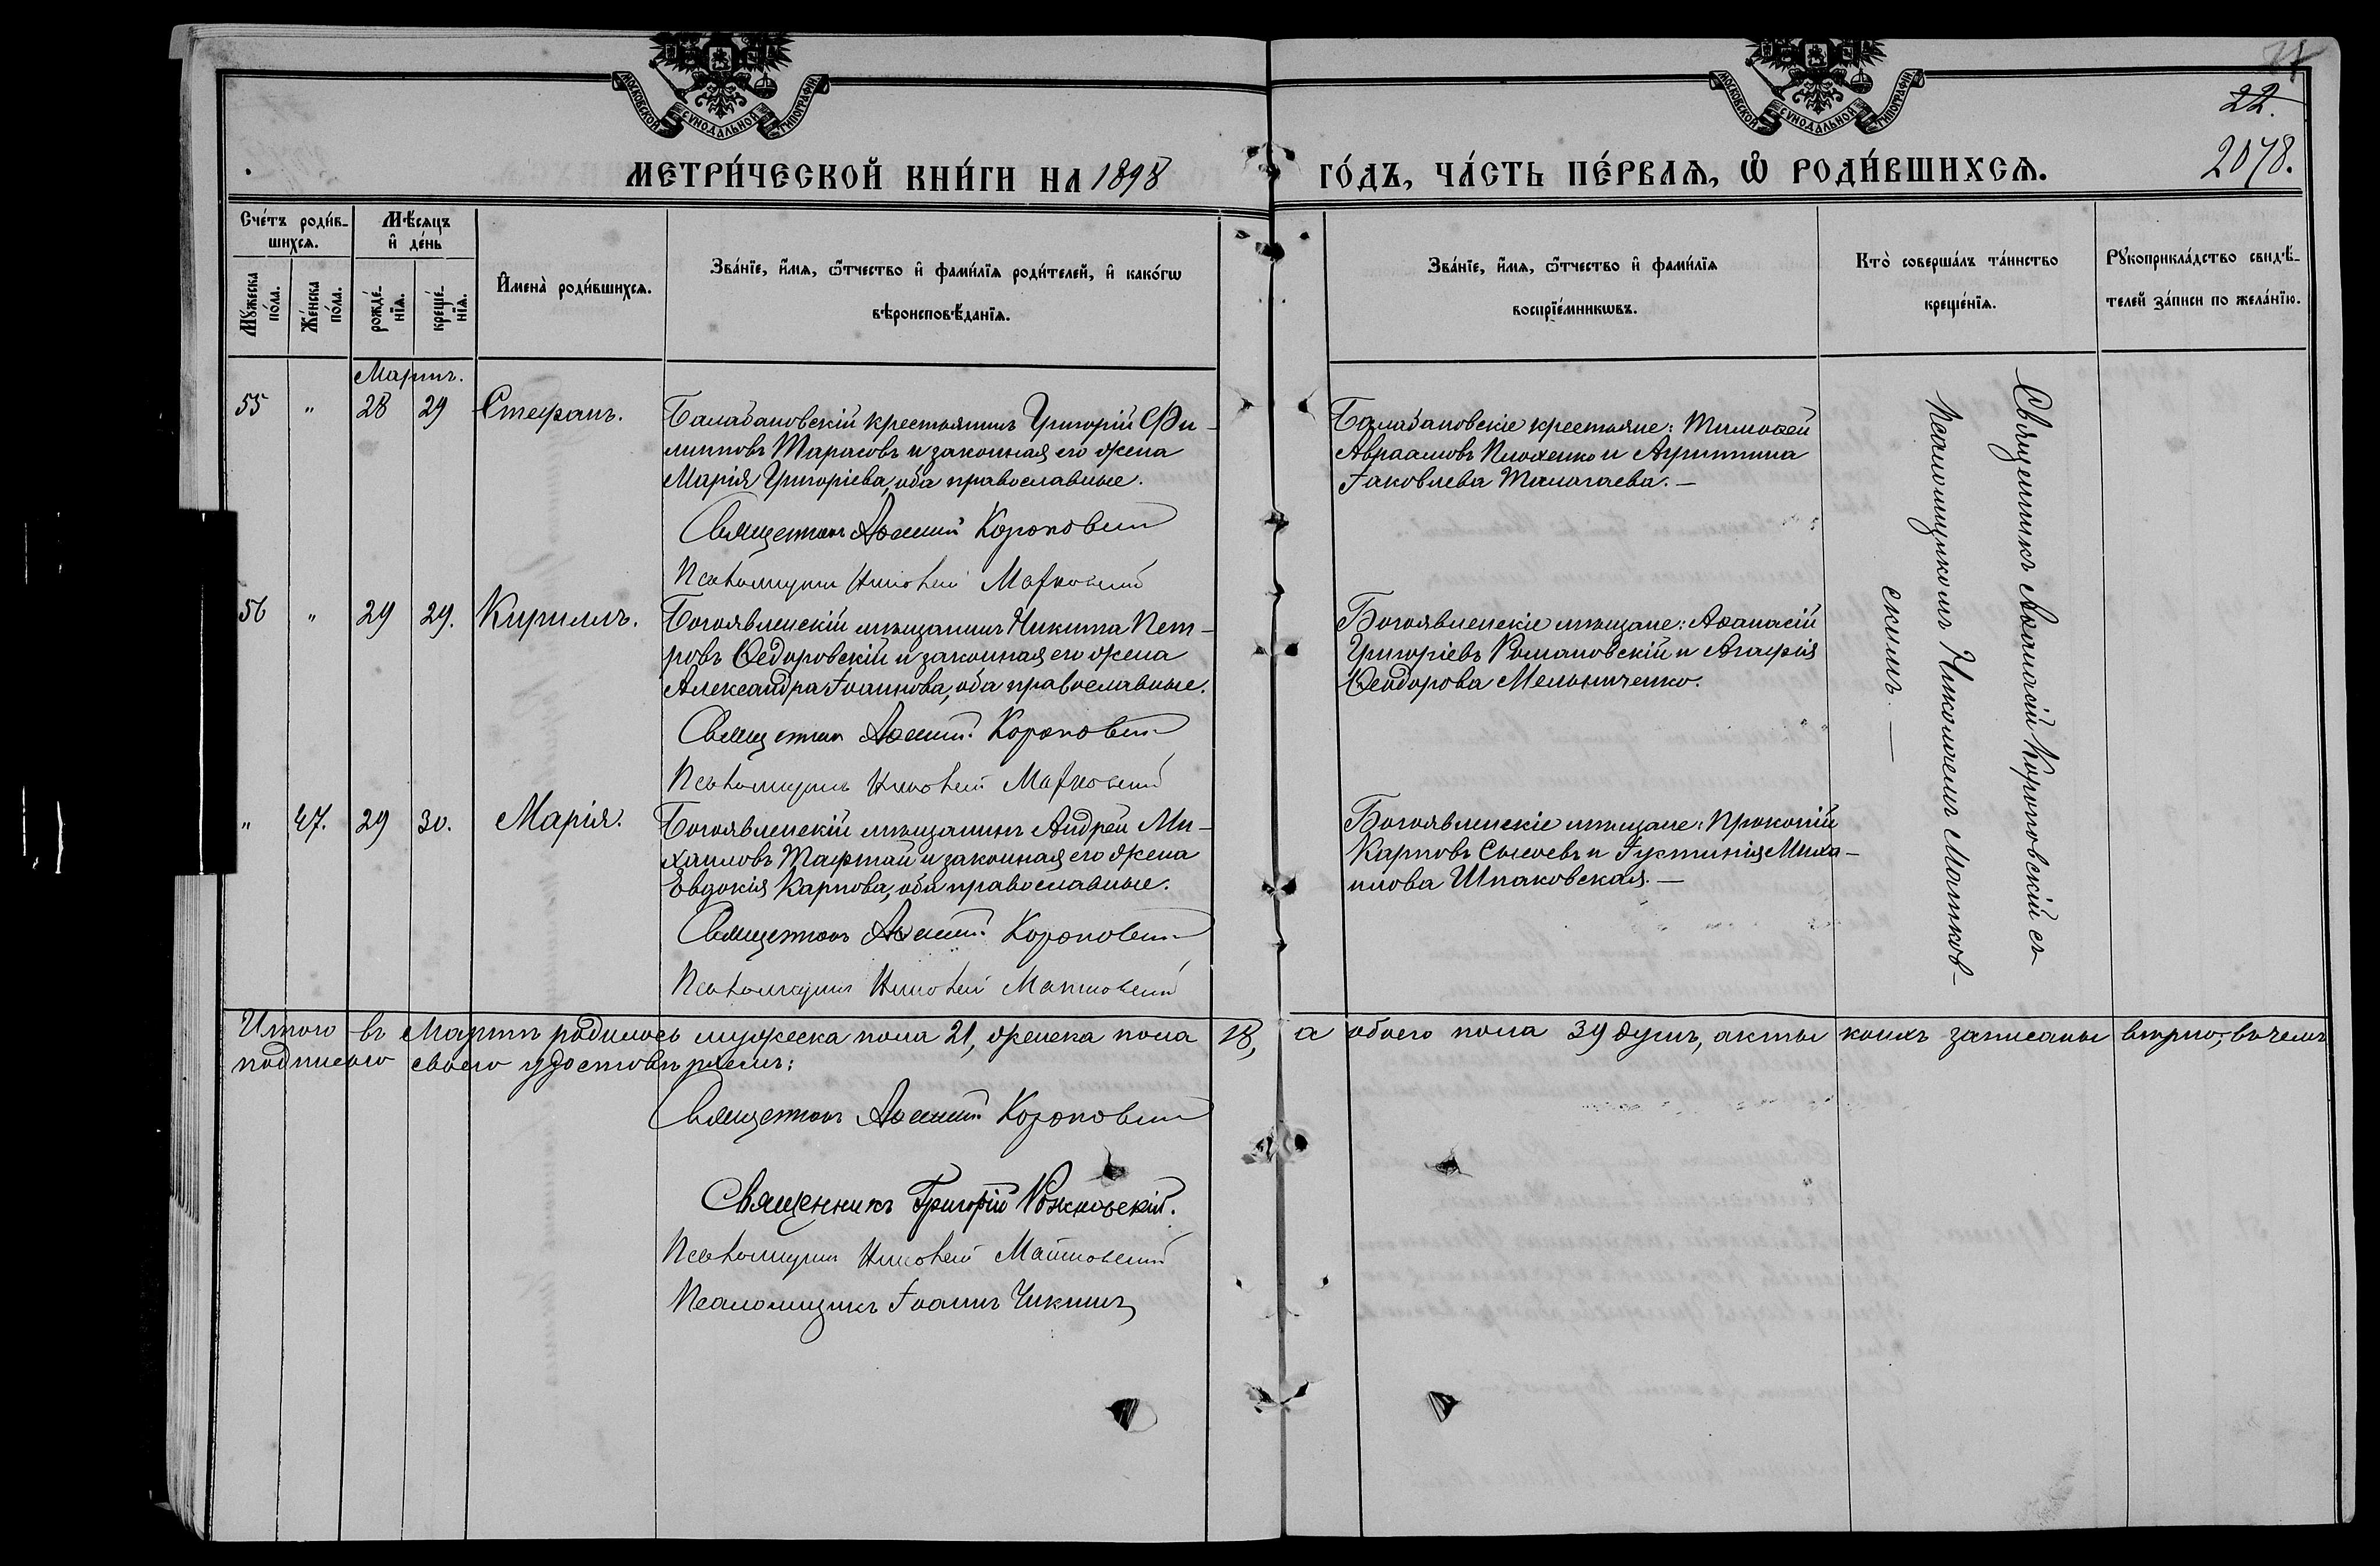 МОСКОВСКОЙ СУНОДАЛЬНОЙ ТИПОГРАФІИ
МОСКОВСКОЙ СУНОДАЛЬНОЙ ТИПОГРАФІИ
22.
2078.
МЕТРИ́ЧЕСКОЙ КНИ́ГИ НА 1898
ГО́ДЪ, ЧА́СТЬ ПЕ́РВАѦ, Ѡ҆ РОДИ́ВШИХСѦ.
Сче́тъ роди́в-
шихсѧ.
Мѣ́сѧцъ
и҆ де́нь
Мꙋ́жеска
по́ла.
Же́нска
по́ла.
рожде́-
нїѧ.
креще́-
нїѧ.
И҆мена̀ роди́вшихсѧ.
Зва́нїе, и҆́мѧ, ѻ҆́тчество и҆ фами́лїѧ роди́телей, и҆ како́гѡ
вѣроисповѣ́данїѧ.
Зва́нїе, и҆́мѧ, ѻ҆́тчество и҆ фами́лїѧ
воспрїе́мникѡвъ.
Кто̀ соверша́лъ та́инство
креще́нїѧ.
Рꙋкоприкла́дство свидѣ́-
телей за́писи по жела́нїю.
Мартъ.
55 " 28 29 Стефанъ.
Балабановскій крестьянинъ Григорій Фи-
липповъ Тарасовъ и законная его жена
Марія Григоріева, оба православные.
Священникъ Аѳанасій Короповскій
Псаломщикъ Николай Матковскій
Балабановскіе крестьяне: Тимоѳей
Авраамовъ Плохенко и Агриппина
Іаковлева Малагаева. —
56 " 29 29. Кириллъ.
Богоявленскій мѣщанинъ Никита Пет-
ровъ Ѳедоровскій и законная его жена
Александра Іоаннова, оба православные.
Священникъ Аѳанасій Короповскій
Псаломщикъ Николай Матковскій
Богоявленскіе мѣщане: Аѳанасій
Григоріевъ Романовскій и Агафія
Ѳеодорова Мельниченко.
" 47. 29 30. Марія.
Богоявленскій мѣщанинъ Андрей Ми-
хаиловъ Тафтай и законная его жена
Евдокія Карпова, оба православные.
Священникъ Аѳанасій Короповскій
Псаломщикъ Николай Матковскій
Богоявленскіе мѣщане: Прокопій
Карповъ Сысоевъ и Іустинія Миха-
илова Шпаковская. —
Священникъ Аѳанасій Короповскій съ
Псаломщикомъ Николаемъ Матков-
скимъ. —
Итого въ Мартѣ родилось мужеска пола 21, женска пола 18, а обоего пола 39 душъ, акты коихъ записаны вѣрно, въ чемъ
подписью своею удостовѣряемъ:
Священникъ Аѳанасій Короповскій
Священникъ Григорій Рожковскій.
Псаломщикъ Николай Матковскій
Псаломщикъ Іоаннъ Чикинъ